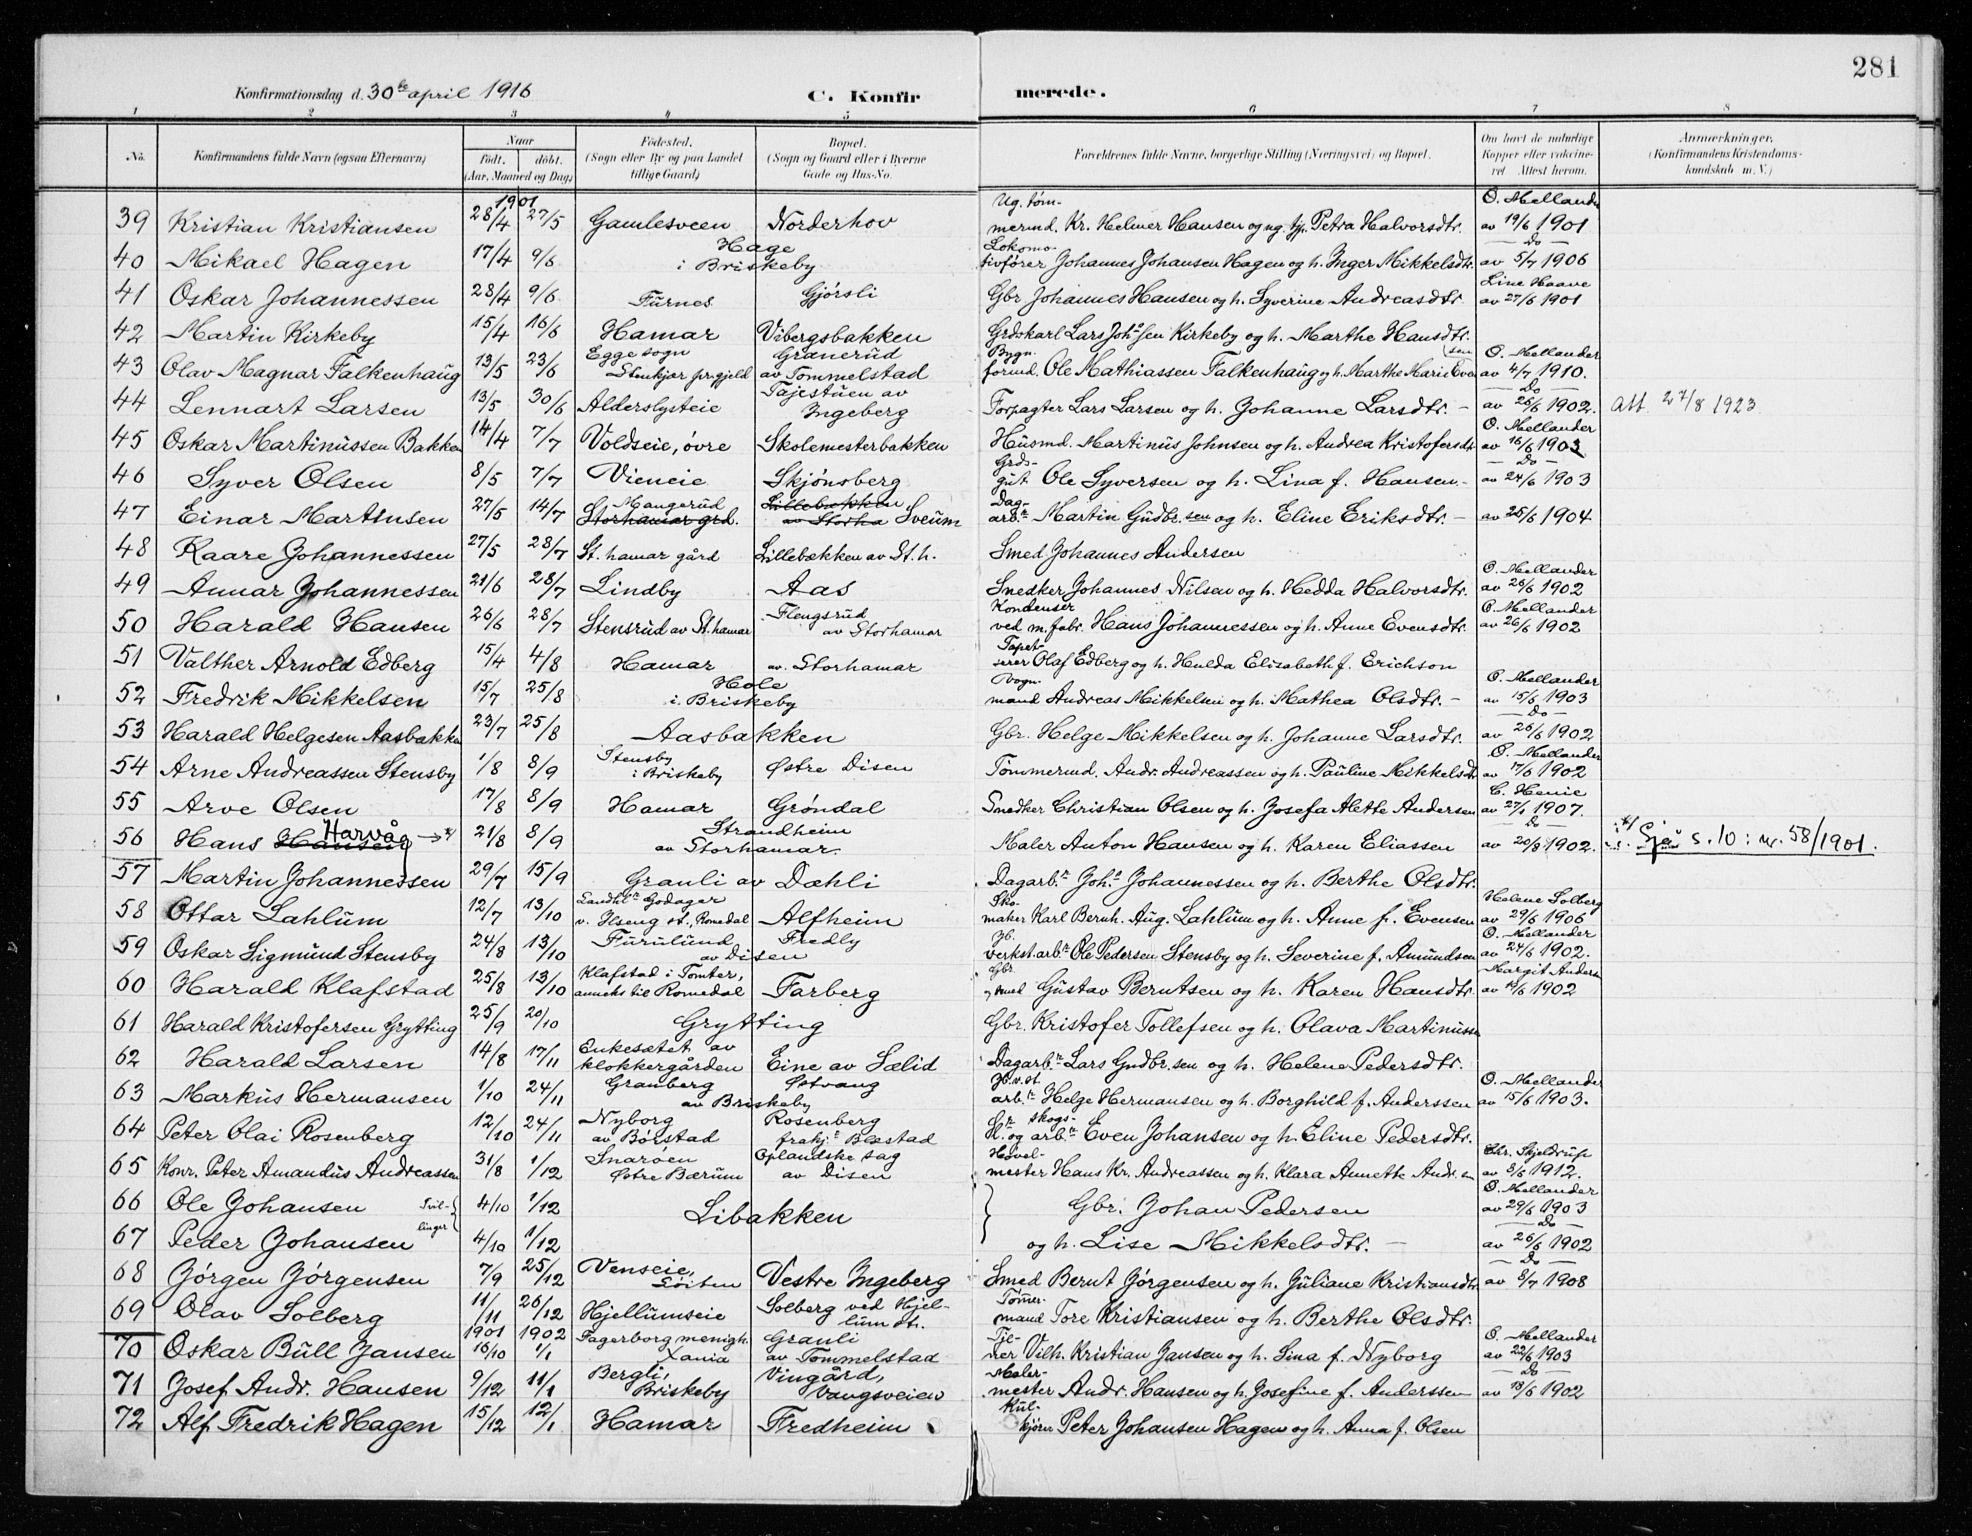 281
Konfirmationsdag d. 30te april 1916 C. Konfirmerede.
1 2 3 4 5 6 7 8
No. Konfirmandens fulde Navn (ogsaa Efternavn) Naar født. døbt. (Aar, Maaned og Dag) Fødested. (Sogn eller By og paa Landet tillige Gaard) Bopæl. (Sogn og Gaard eller i Byerne Gade og Hus-No. Forældrenes fulde Navne, borgerlige Stilling (Næringsvei) og Bopæl. Om havt de naturlige Kopper eller vakcineret Attest herom. Anmærkninger, (Konfirmandens Kristendomskundskab m. V.)
1901
39 Kristian Kristiansen 28/4 27/5 Gamlesveen Norderhov Ug. tømmermd. Kr. Helmer Hansen og ug. tjp. Petra Halvorsdtr. O. Mellander av 19/6 1901
40 Mikael Hagen 17/4 9/6 Hage i Briskeby Lokomotivfører Johannes Johansen Hagen og h. Inger Mikkelsdtr. Do av 5/7 1906
41 Oskar Johannessen 28/4 9/6 Furnes Gjørsli Gbr Johannes Hansen og h. Syverine Andreasdtr. Line Haave av 27/6 1901
42 Martin Kirkeby 15/4 16/6 Hamar Vibergsbakken Grdskarl Lars Johssen Kirkeby og h. Marthe Hansdtr.
43 Olav Magnar Falkenhaug 13/5 23/6 Egge sogn Stenkjær prgjeld Granerud av Tommelstad Bygn. formd. Ole Mathiassen Falkenhaug og h. Marthe Marie Evensen O. Mellander av 4/7 1910.
44 Lennart Larsen 13/5 30/6 Alderslysteie Tajestuen av Ingeberg Forpagter Lars Larsen og h. Johanne Larsdtr. Do av 26/6 1902. Att. 27/8 1923
45 Oskar Martinussen Bakken 14/4 7/7 Voldseie, øvre Skolemesterbakken Husmd. Martinus Johnsen og h. Andrea Kristofersdtr O. Mellander av 16/6 1903
46 Syver Olsen 8/5 7/7 Vieneie Skjønsberg Grdsgut Ole Syversen og h. Lina f. Hansen. Do av 24/6 1903
47 Einar Martinsen 27/5 14/7 Mangerud Storhamar grd. Lillebækken av Storha Sveum Dagarb.r Martin Gudbr.sen og h. Eline Eriksdtr. av 25/6 1904
48 Kaare Johannessen 27/5 28/7 St. hamar gård Lillebækken av St. h. Smed Johannes Andersen
49 Annar Johannessen 21/6 28/7 Lindby Aas Snedker Johannes Nilsen og h. Hedda Halvorsdtr. O. Mellander av 26/6 1902
50 Harald Hansen 26/6 28/7 Stensrud av St.hamar Flengsrud av Storhamar Kondenser ved m.fabr. Hans Johannessen og h. Anne Evensdtr. O. Mellander av 26/6 1902
51 Valther Arnold Edberg 15/4 4/8 Hamar av Storhamar Tapetserer Olaf Edberg og h. Hulda Elizabeth f. Erichson
52 Fredrik Mikkelsen 15/7 25/8 Hole i Briskeby Vognmand Andreas Mikkelsen og h. Mathea Olsdtr. O. Mellander av 15/6 1903
53 Harald Helgesen Aasbakken 23/7 25/8 Aasbakken Gbr. Helge Mikkelsen og h. Johanne Larsdtr. Do av 26/6 1902
54 Arne Andreassen Stensby 1/8 8/9 Stensby i Briskeby Østre Disen Tømmermd. Andr. Andreassen og h. Pauline Mikkelsdt. O. Mellander av 17/6 1902
55 Arve Olsen 17/8 8/9 Hamar Grøndal Snedker Christian Olsen og h. Josefa Alette Andersen C. Henie av 27/1 1907.
56 Hans Hansen Harvåg →*/ 21/8 8/9 Strandheim av Storhamar. Maler Anton Hansen og h. Karen Eliassen Do av 20/8 1902. */ Sjå s. 10: nr. 58/1901.
57 Martin Johannessen 29/7 15/9 Granli av Dæhli Dagarb.r Joh.s Johannessen og h. Berthe Olsdtr.
58 Ottar Lahlum 12/7 13/10 Landhl.r Godager v. Ilseng st., Romedal Alfheim Skomaker Karl Bernh. Aug. Lahlum og h. Anne f. Evensen Helene Solberg av 29/6 1906
59 Oskar Sigmund Stensby 24/8 13/10 Furulund av Disen Fredly Jb. verkst.arb.r Ole Pedersen Stensby og h. Severine f. Amundsen O. Mellander av 24/6 1902.
60 Harald Klafstad 25/8 13/10 Klafstad i Tomter, anneks til Romedal Farberg Gbr. smed Gustav Berntsen og h. Karen Hansdtr. Margit Andersen av 18/6 1902
61 Harald Kristofersen Grytting 25/9 20/10 Grytting Gbr. Kristofer Tollefsen og h. Olava Martinussen
62 Harald Larsen 14/8 17/11 Enkesætet av klokkergården Eine av Sælid Dagarb.r Lars Gudbr.sen og h. Helene Pedersdtr.
63 Markus Hermansen 1/10 24/11 Granberg av Briskeby Østvang Jb.v.st. arb.r Helge Hermansen og h. Borghild f. Anderssen O. Mellander av 15/6 1903.
64 Peter Olai Rosenberg 12/10 24/11 Nyborg av Børstad Rosenberg frakj.t Blæstad Gr. og skogsarb.r Even Johansen og h. Eline Pedersdtr.
65 Konr. Peter Amandus Andreassen 31/8 1/12 Snarøen Østre Bærum Oplandske sag av Disen Høvelmester Hans Kr. Andreassen og h. Klara Annette Andr.sen Chr. Skjeldrup av 8/6 1912.
66 Ole Johansen Tvillinger 4/10 1/12 Libakken Gbr. Johan Pedersen O. Mellander av 29/6 1903
67 Peder Johansen 4/10 1/12 og h. Lise Mikkelsdtr. Do av 26/6 1902
68 Jørgen Jørgensen 7/9 25/12 Venseie, Løiten Vestre Ingeberg Smed Bernt Jørgensen og h. Juliane Kristiansdtr Do av 8/7 1908
69 Olav Solberg 11/11 26/12 Hjellumseie Solberg ved Hjellum st. Tømmermand Tore Kristiansen og h. Berthe Olsdtr.
1901 1902
70 Oskar Bull Jansen 16/10 1/1 Fagerborg menigh. Xania Granli av Tommelstad Tjener Vilh. Kristian Jansen og h. Lina f. Nyborg O. Mellander av 22/6 1903
71 Josef Andr. Hansen 9/12 11/1 Bergli, Briskeby Vingård, Vangsveien Malermester Andr. Hansen og h. Josefine f. Anderssen Do av 18/6 1902
72 Alf Fredrik Hagen 15/12 12/1 Hamar Fredheim Kulkjører Peter Johansen Hagen og h. Anna f. Olsen